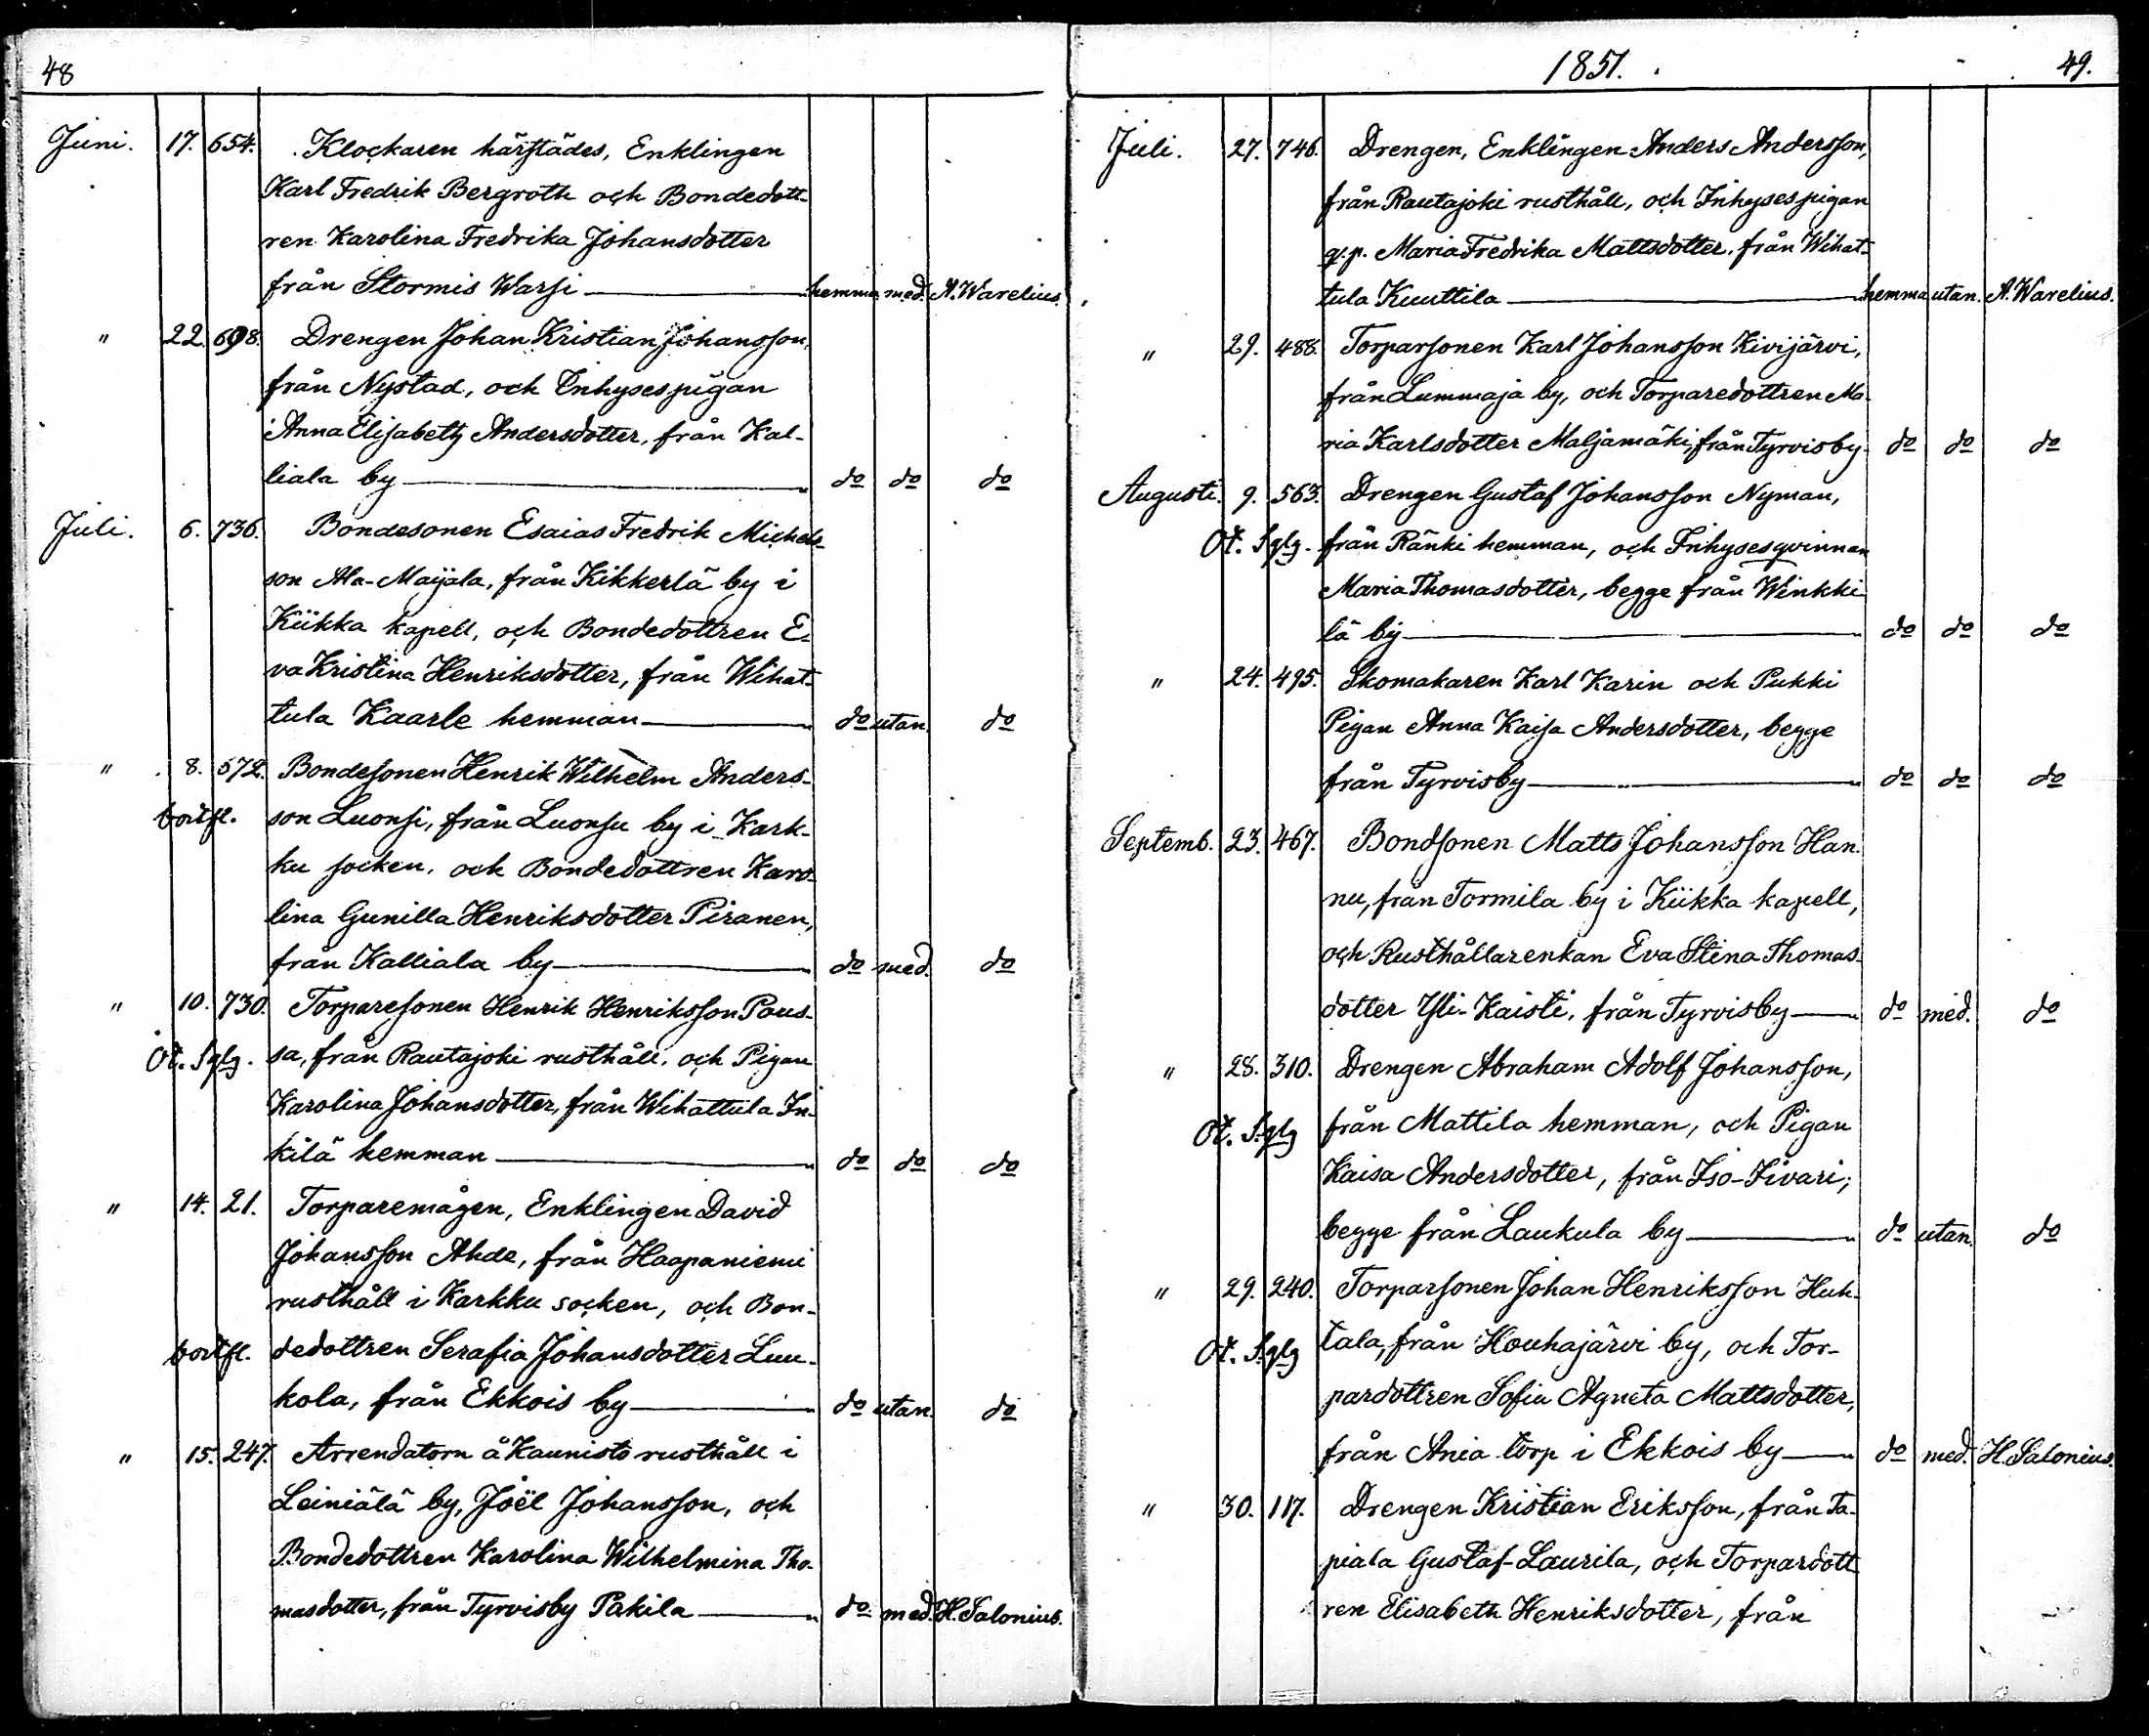 48
Juni. 17. 654. Klockaren härstädes, Enklingen
Karl Fredrik Bergroth och Bondedott-
ren Karolina Fredrika Johansdotter
från Stormis Warsi hemma med. A. Warelius.
" 22. 698. Drengen Johan Kristian Johansson,
från Nystad, och Inhysespigan
Anna Elisabeth Andersdotter, från Kal-
liala by do do do
Juli. 6. 736. Bondesonen Esaias Fredrik Michels-
son Ala-Maijala, från Kikkerlä by i
Kiikka kapell, och Bondedottren E-
va Kristina Henriksdotter, från Wihat-
tula Kaarle hemman do utan. do
" 8. 572. Bondesonen Henrik Wilhelm Anders-
bortfl. son Luonsi, från Luonsu by i Kark-
ku socken, och Bondedottren Karo-
lina Gunilla Henriksdotter Piranen,
från Kalliala by do med. do
" 10. 730. Torparesonen Henrik Henriksson Pous-
Ot. Sglg. sa, från Rautajoki rusthåll, och Pigan
Karolina Johansdotter, från Wihattula In-
kilä hemman do do do
" 14. 21. Torparemågen, Enklingen David
Johansson Ahde, från Haapaniemi
rusthåll i Karkku socken, och Bon-
bortfl. dedottren Serafia Johansdotter Luu-
kola, från Ekkois by do utan. do
" 15. 247. Arrendatorn å Kaunisto rusthåll i
Leiniälä by, Joël Johansson, och
Bondedottren Karolina Wilhelmina Tho-
masdotter, från Tyrvisby Pakila do med. H. Salonius.
1851. 49.
Juli. 27. 746. Drengen, Enklingen Anders Andersson,
från Rautajoki rusthåll, och Inhysespigan
q.p. Maria Fredrika Mattsdotter, från Wihat-
tula Kuuttila hemma utan. A. Warelius.
" 29. 488. Torparsonen Karl Johansson Kivijärvi,
från Lummaja by, och Torparedottren Ma-
ria Karlsdotter Maljamäki, från Tyrvisby do do do
Augusti. 9. 563. Drengen Gustaf Johansson Nyman,
Ot. Sglg. från Ränki hemman, och Inhysesqvinnan
Maria Thomasdotter, begge från Winkki-
lä by do do do
" 24. 495. Skomakaren Karl Karin och Pukki
Pigan Anna Kaisa Andersdotter, begge
från Tyrvisby do do do
Septemb. 23. 467. Bondsonen Matts Johansson Han-
nu, från Tormila by i Kiikka kapell,
och Rusthållarenkan Eva Stina Thomas-
dotter Yli-Kaisti, från Tyrvisby do med. do
" 28. 310. Drengen Abraham Adolf Johansson,
Ot. Sglg från Mattila hemman, och Pigan
Kaisa Andersdotter, från Iso-Iivari;
begge från Laukula by do utan. do
" 29. 240. Torparsonen Johan Henriksson Huh-
Ot. Sglg tala, från Houhajärvi by, och Tor-
pardottren Sofia Agneta Mattsdotter,
från Ania torp i Ekkois by do med. H. Salonius.
" 30. 117. Drengen Kristian Eriksson, från Ta-
piala Gustaf-Laurila, och Torpardott-
ren Elisabeth Henriksdotter, från